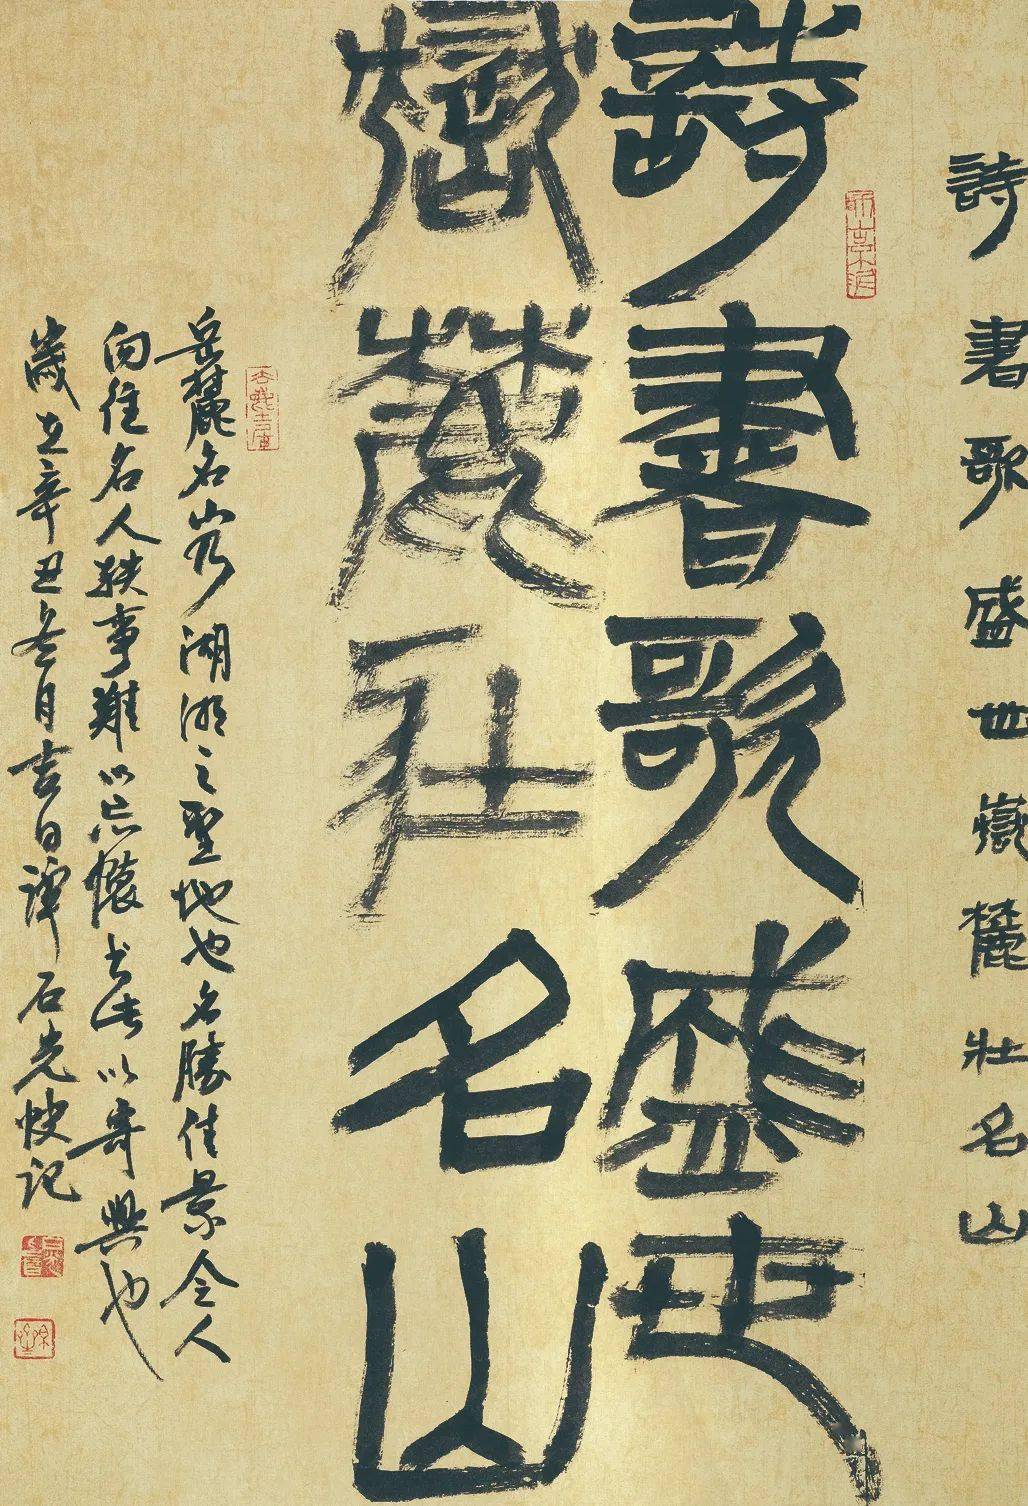 詩書歌盛世嶽麓壯名山
詩書歌盛世
嶽麓壯名山
岳麓名山乃湖湘之聖地也名勝佳景令人
向往名人軼事難以忘懷書此以寄興也
歲在辛丑冬月吉日譚石光快記